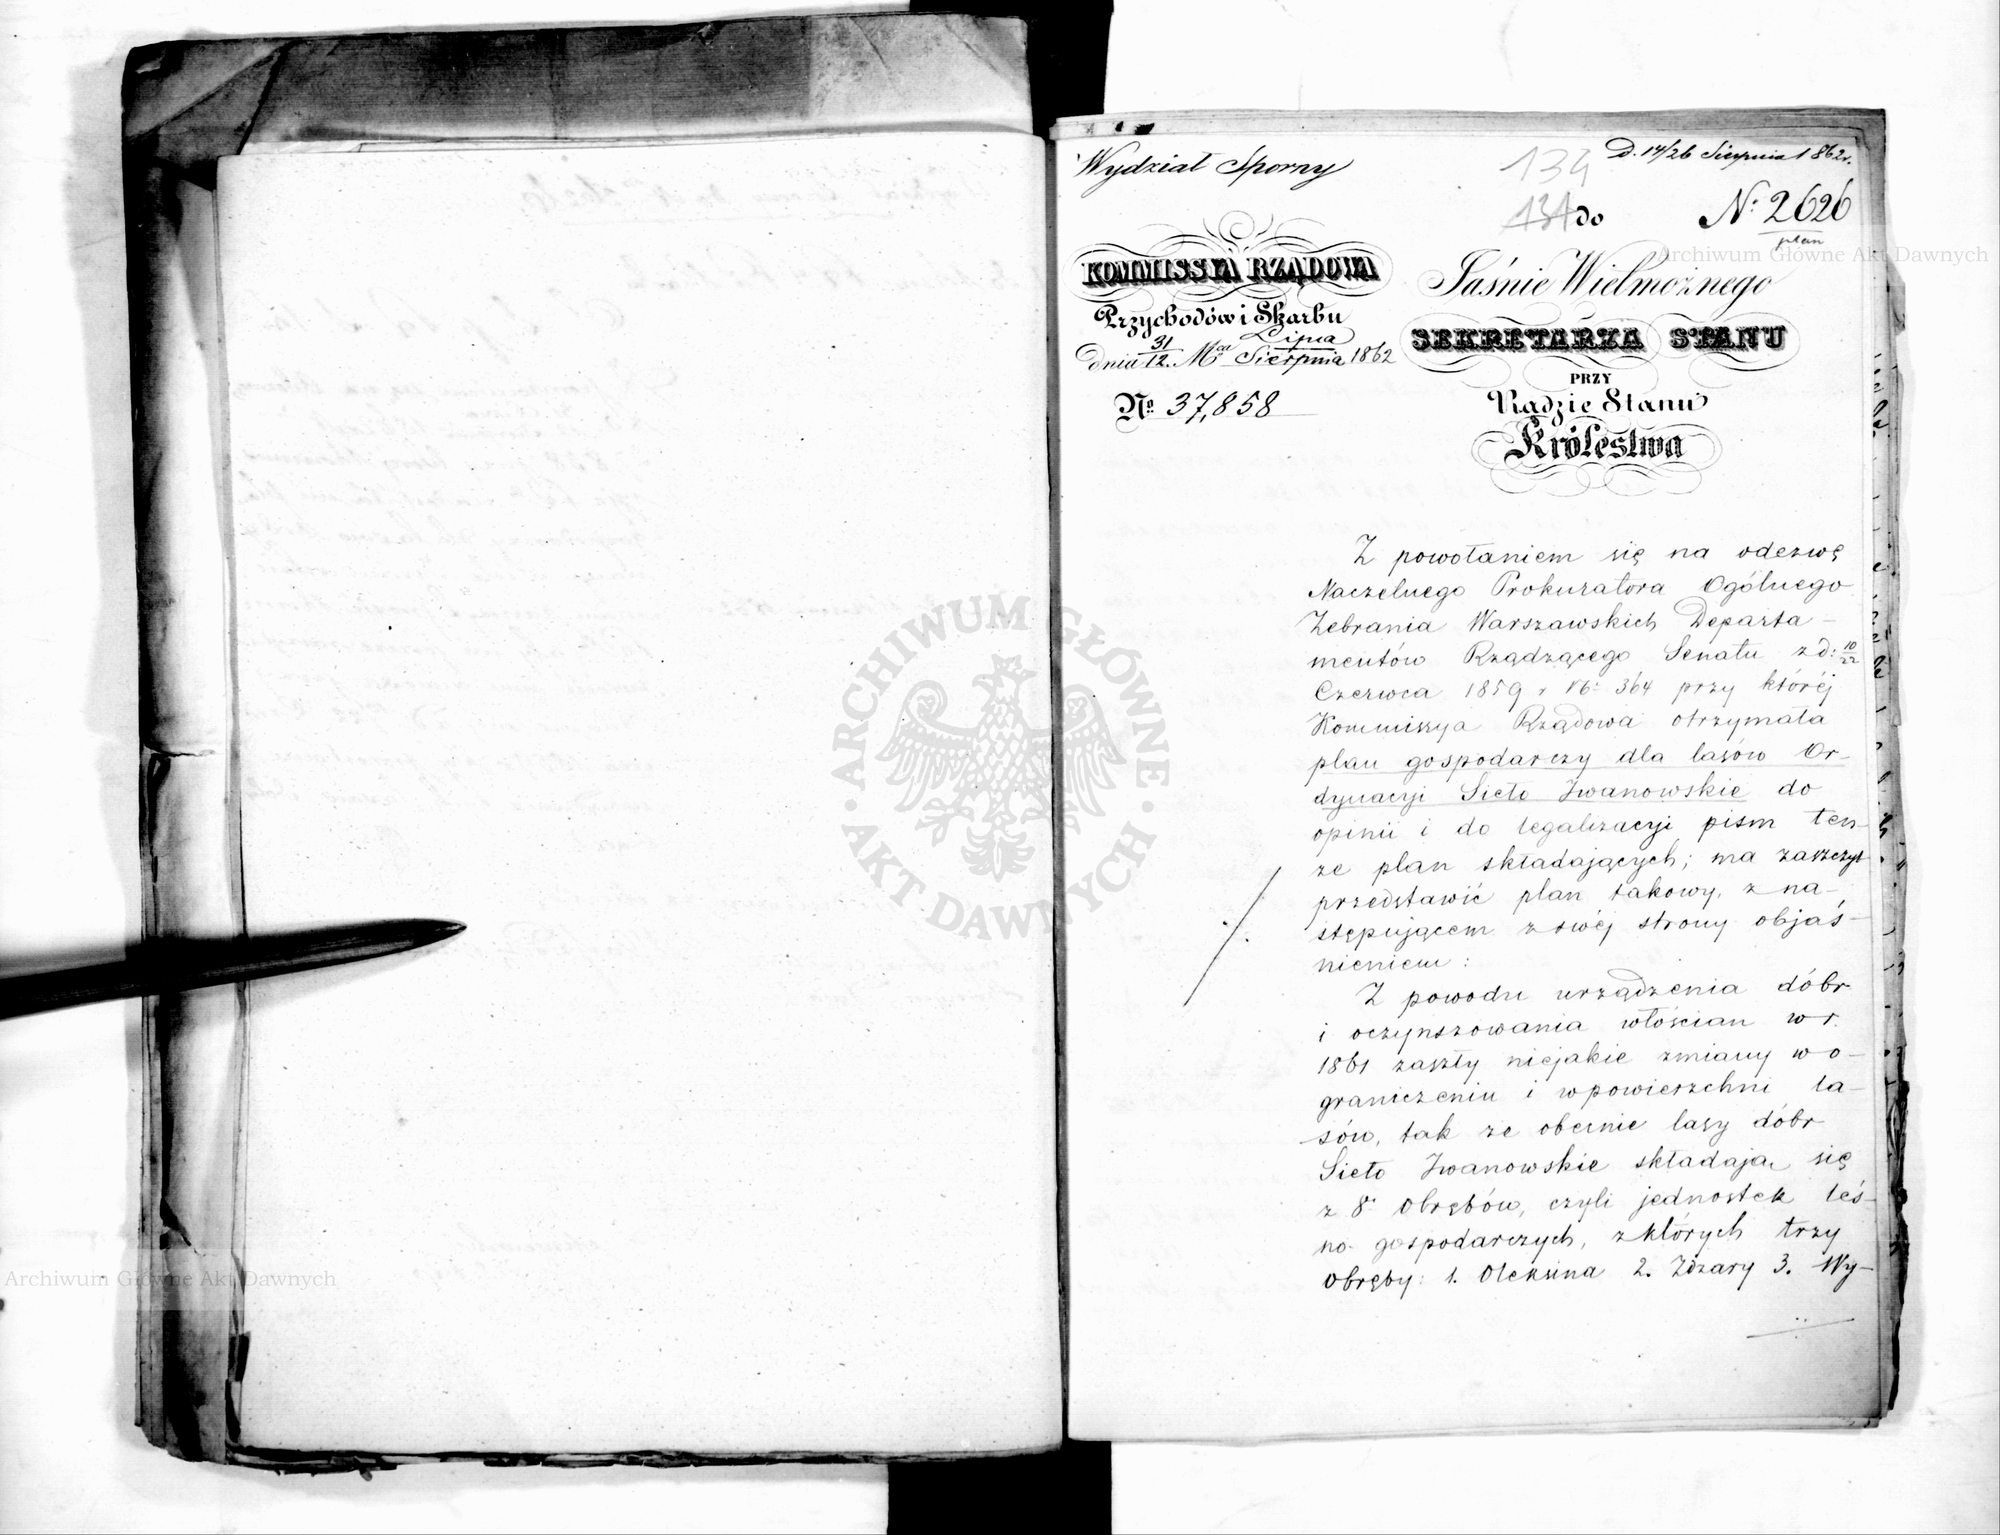 Wydział Sporny
D. 14/26 Sierpnia 1862 r.
134
131
do
N: 2626
plan
KOMMISSYA RZĄDOWA
Przychodów i Skarbu
dnia 31/12. Mca Lipca/Sierpnia 1862
No 37,858
Jaśnie Wielmożnego
SEKRETARZA STANU
PRZY
Radzie Stanu
Królestwa
Z powołaniem się na odezwę
Naczelnego Prokuratora Ogólnego
Zebrania Warszawskich Departa-
mentów Rządzącego Senatu z d: 10/22
Czerwca 1859 r N: 364 przy której
Kommissya Rządowa otrzymała
plan gospodarczy dla lasów Or-
dynacyi Sieło Iwanowskie do
opinii i do legalizacyi pism ten-
że plan składających; ma zaszczyt
przedstawić plan takowy, z na-
stępującem z swéj strony objaś-
nieniem:
Z powodu urządzenia dóbr
i oczynszowania włościan w r.
1861 zaszły niejakie zmiany w o-
graniczeniu i w powierzchni la-
sów, tak że obecnie lasy dóbr
Sieło Iwanowskie składają się
z 8 Obrębów, czyli jednostek leś-
no gospodarczych, z których trzy
Obręby: 1. Oleksina 2. Zdzary 3. Wy-
ARCHIWUM GŁÓWNE AKT DAWNYCH
Archiwum Główne Akt Dawnych
Archiwum Główne Akt Dawnych